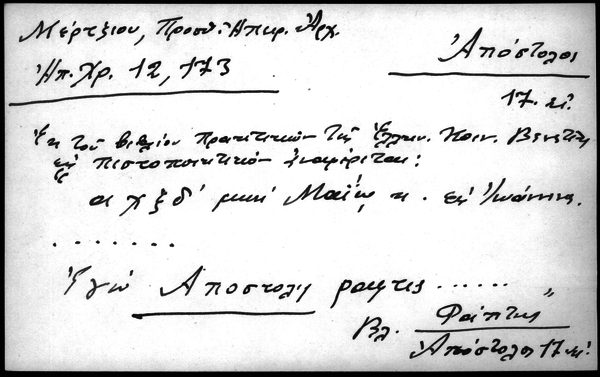 Μέρτζιου, Προσθ. Ηπειρ. Αρχ.
Ἠπ. Χρ. 12, 173
Ἀπόστολοι
17. αἰ.
Ἐκ τοῦ βιβλίου Πρακτικῶν τῆς Ἑλλην. Κοιν. Βενετίας
εἰς πιστοποιητικὸν ἀναφέρεται:
αχξδ΄ μηνὶ Μαΐῳ κ. εἰς Ἰωάννινα.
. . . . . . .
Ἐγὼ Ἀποστόλης ραφτις ......"
Βλ. Φράπτης
Ἀπόστολοι 17 αἰ.